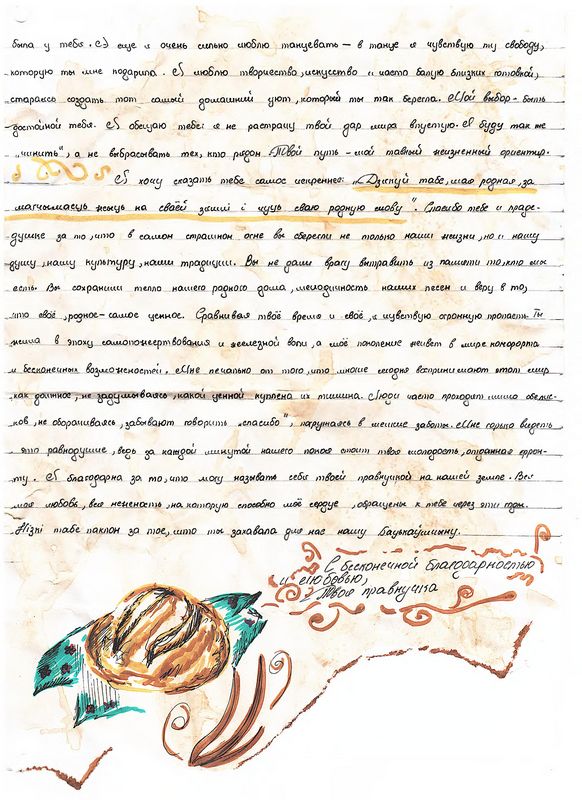 была у тебя. А еще я очень сильно люблю танцевать – в танце я чувствую ту свободу,
которую ты мне подарила. Я люблю творчество, искусство и часто балую близких готовкой,
стараясь создать тот самый домашний уют, который ты так берегла. Мой выбор – быть
достойной тебя. Я обещаю тебе: я не растрачу твой дар мира впустую. Я буду так же
„чинить“, а не выбрасывать тех, кто рядом. Твой путь – мой главный жизненный ориентир.
Я хочу сказать тебе самое искреннее: „Дзякуй табе, мая родная, за
магчымасць жыць на сваёй зямлі і чуць сваю родную мову“. Спасибо тебе и праде-
душке за то, что в самом страшном огне вы сберегли не только наши жизни, но и нашу
душу, нашу культуру, наши традиции. Вы не дали врагу вытравить из памяти то, кто мы
есть. Вы сохранили тепло нашего родного дома, мелодичность наших песен и веру в то,
что своё, родное – самое ценное. Сравнивая твоё время и своё, я чувствую огромную пропасть. Ты
жила в эпоху самопожертвования и железной воли, а моё поколение живет в мире комфорта
и бесконечных возможностей. Мне печально от того, что многие сегодня воспринимают этот мир
как должное, не задумываясь, какой ценной куплена их тишина. Люди часто проходят мимо обелис-
ков, не оборачиваясь, забывают говорить „спасибо“, погрузнувшись в мелкие заботы. Мне горько видеть
это равнодушие, ведь за каждой минутой нашего покоя стоит твоя молодость, отданная фрон-
ту. Я благодарна за то, что могу называть себя твоей правнучкой на нашей земле. Вся
моя любовь, вся нежность, на которую способно моё сердце, обращены к тебе через эти годы.
Нізкі табе паклон за тое, што ты захавала для нас нашу Бацькаўшчыну.
С бесконечной благодарностью
и любовью,
Твоя правнучка